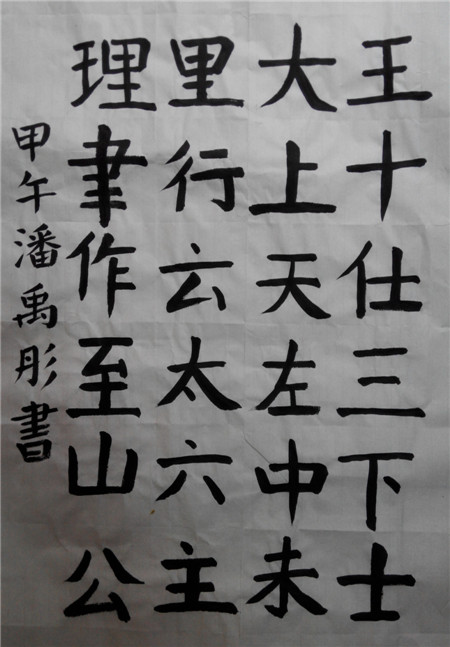 王十仕三下士
大上天左中未
里行云太六主
理聿作至山公
甲午潘禹彤書